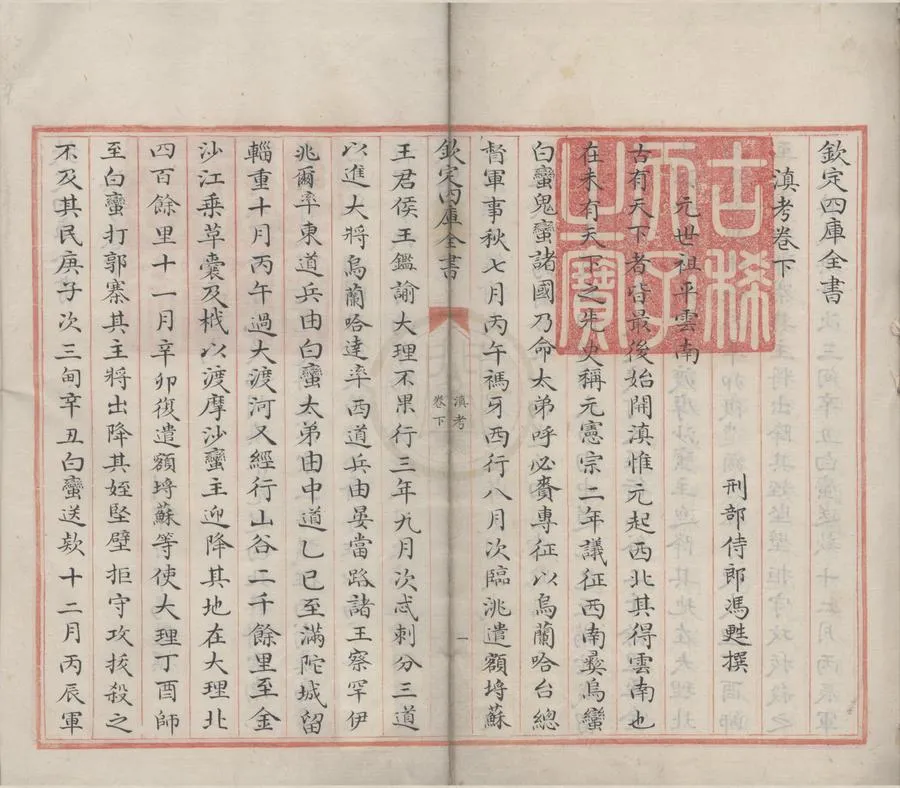 欽定四庫全書
滇考卷下
刑部侍郎馮甦撰
元世祖平雲南
古有天下者皆最後始開滇惟元起西北其得雲南也
在未有天下之先史稱元憲宗二年議征西南彝烏蠻
白蠻鬼蠻諸國乃命太弟呼必賚專征以烏蘭哈台總
督軍事秋七月丙午禡牙西行八月次臨洮遣額埒蘇
欽定四庫全書
滇考
卷下
一
王君侯王鑑諭大理不果行三年九月次忒刺分三道
以進大將烏蘭哈達率西道兵由晏當路諸王察罕伊
兆爾率東道兵由白蠻太弟由中道乙巳至滿陀城留
輜重十月丙午過大渡河又經行山谷二千餘里至金
沙江乘草囊及栰以渡摩沙蠻主迎降其地在大理北
四百餘里十一月辛卯復遣額埒蘇等使大理丁酉師
至白蠻打郭寨其主將出降其姪堅壁拒守攻拔殺之
不及其民庚子次三甸辛丑白蠻送款十二月丙辰軍
古稀
天子
之寶